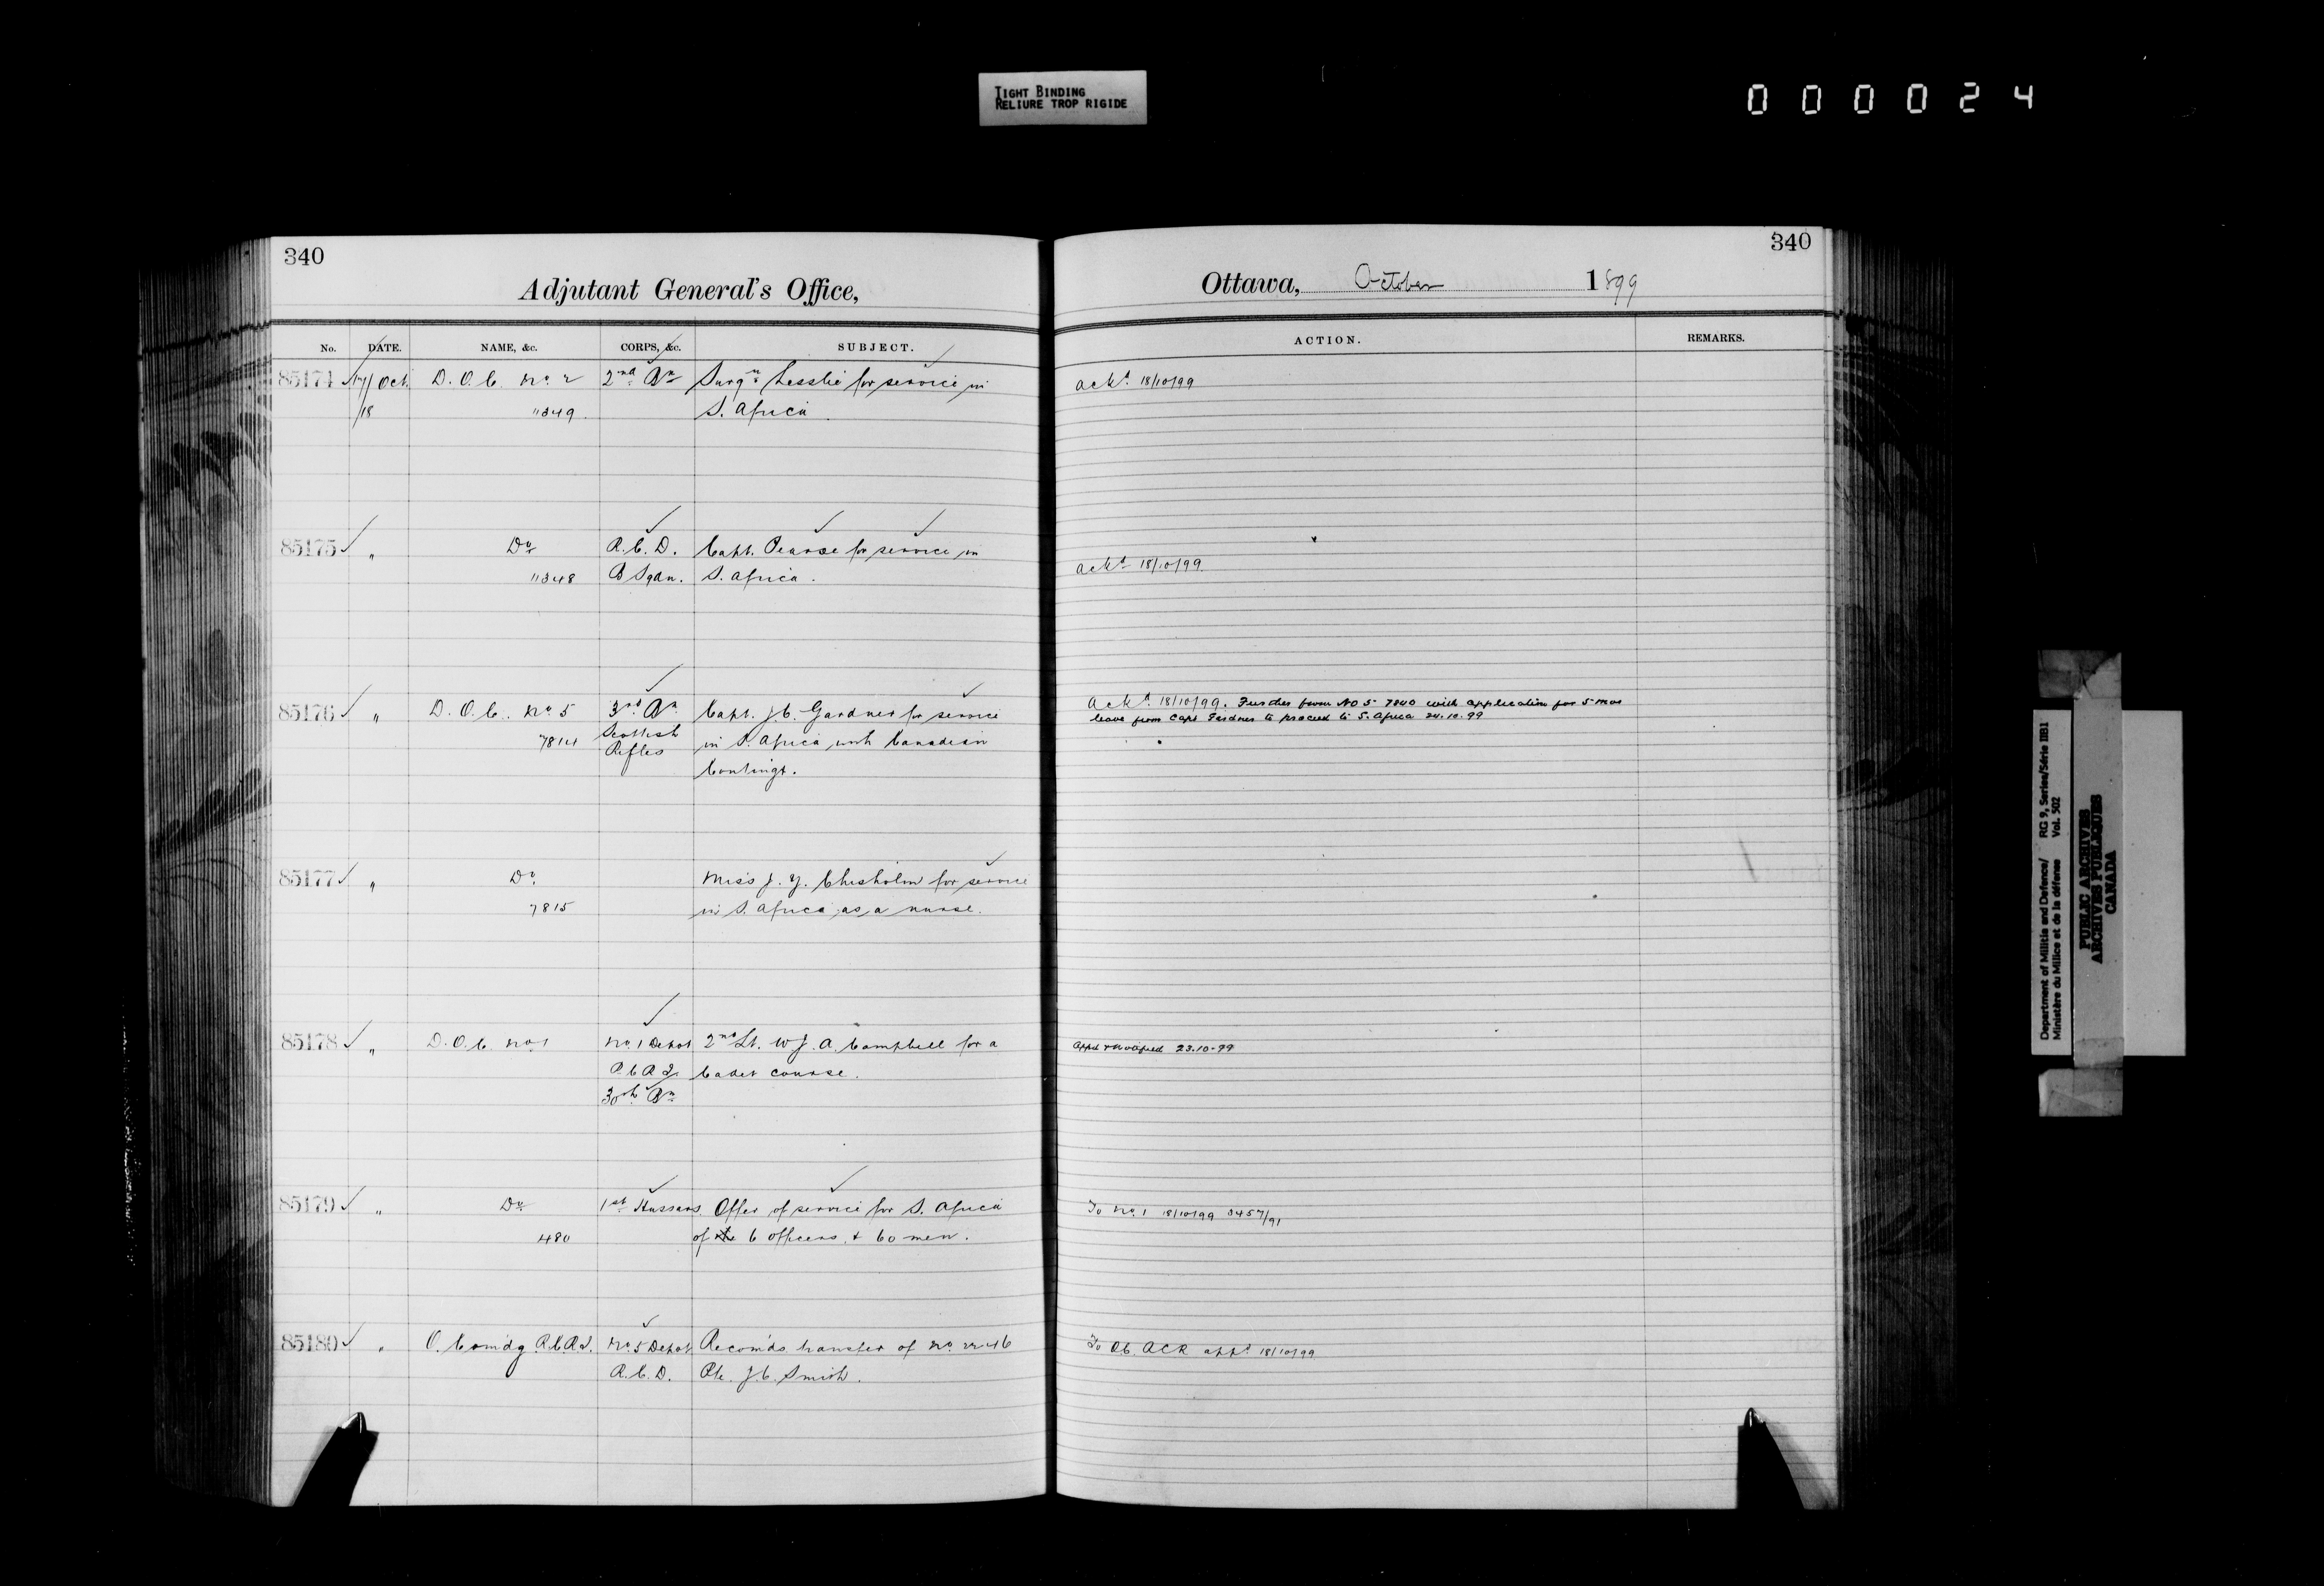 TIGHT BINDING
RELIURE TROP RIGIDE
000024
340
Adjutant General's Office,
No. DATE. NAME, &c. CORPS, &c. SUBJECT.
85174 17/Oct. D. O. C. No. 2 2nd Bn Surgn Lesslie for service in
/18 11349. S. Africa.
85175 " Do R.C.D. Capt. Pearse for service in
11348 B Sqdn. S. Africa.
85176 " D. O. C. No 5 3rd Bn Capt. J. C. Gardner for service
7814 Scottish in S. Africa with Canadian
Rifles
Contingt.
85177 " Do. Miss J. Y. Chisholm for service
7815 in S. Africa as a nurse.
85178 " D. O. C. No 1 No. 1 Depot 2nd Lt. W. J. A. Campbell for a
Cadet course.
30th Bn
85179 " Do 1st Hussars. Offer of service for S. Africa
480 of the 6 officers & 60 men.
85180 " O. Comdg. No 5 Depot Recomds transfer of No 2246
R.C.D. Pte. J. C. Smith.
340
Ottawa, October 1899
ACTION. REMARKS.
ackd. 18/10/99
ackd 18/10/99
Ackd. 18/10/99. Further from No 5 7840 with application for 5 mos
leave from Capt Gardner to proceed to S. Africa 24.10.99
Appd & Notified 23.10-99
To No. 1 18/10/99
To OC. appd 18/10/99
Department of Militia and Defence/ RG 9, Series/Série IIB1
Ministère du Milice et de la défense Vol. 502
PUBLIC ARCHIVES
ARCHIVES PUBLIQUES
CANADA